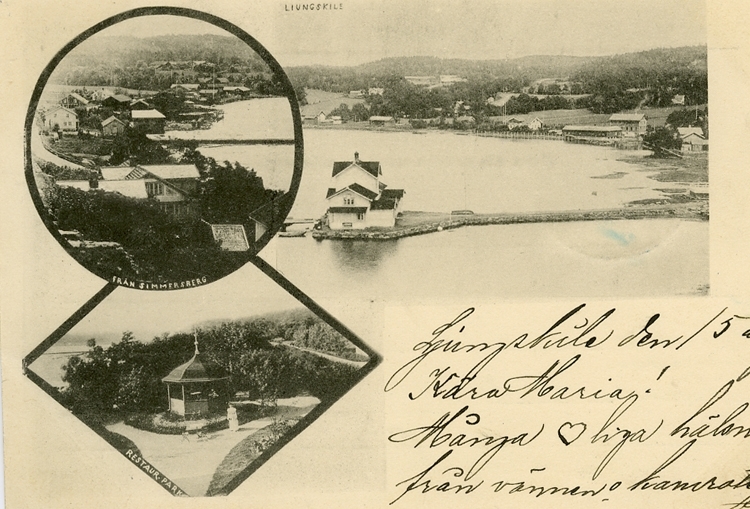 LJUNGSKILE
FRÅN SIMMERSBERG
RESTAUR. PARK
Ljungskile den 15
Kära Maria!
Många ♡ liga hälsn
från vännen o kamrat